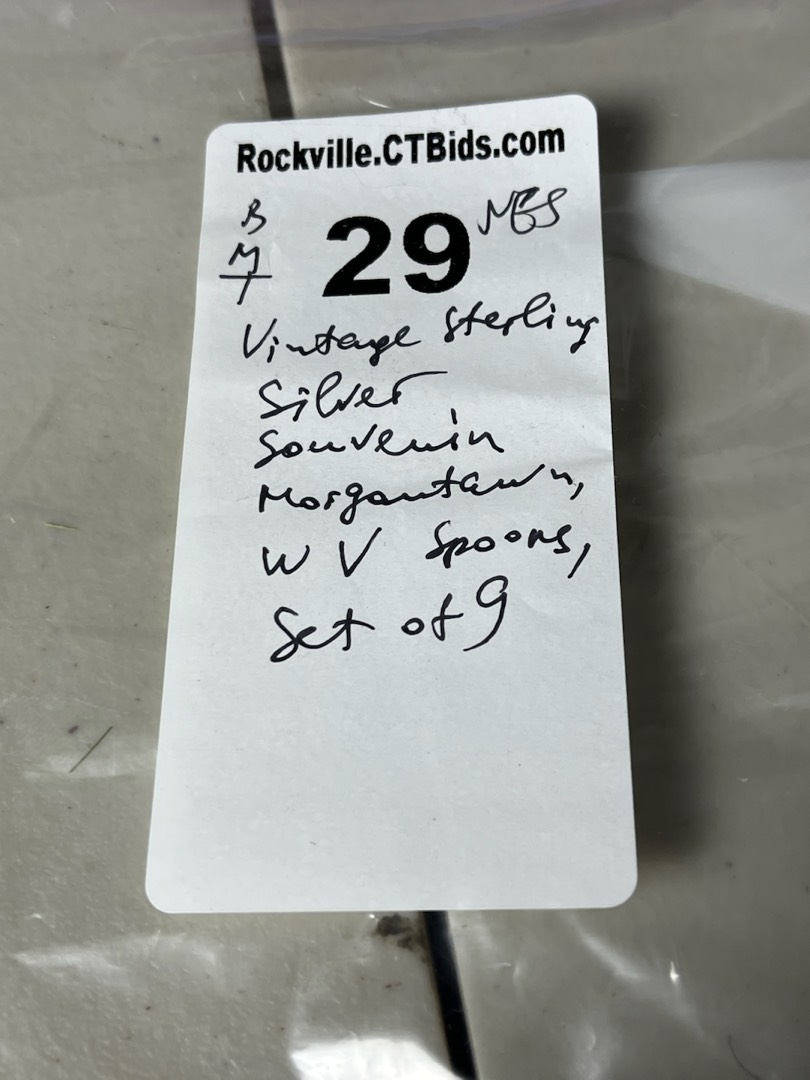 Rockville.CTBids.com
B
M
T
29 NES
Vintage Sterling
Silver
Souvenir
Morgantown,
WV Spoons,
Set of 9